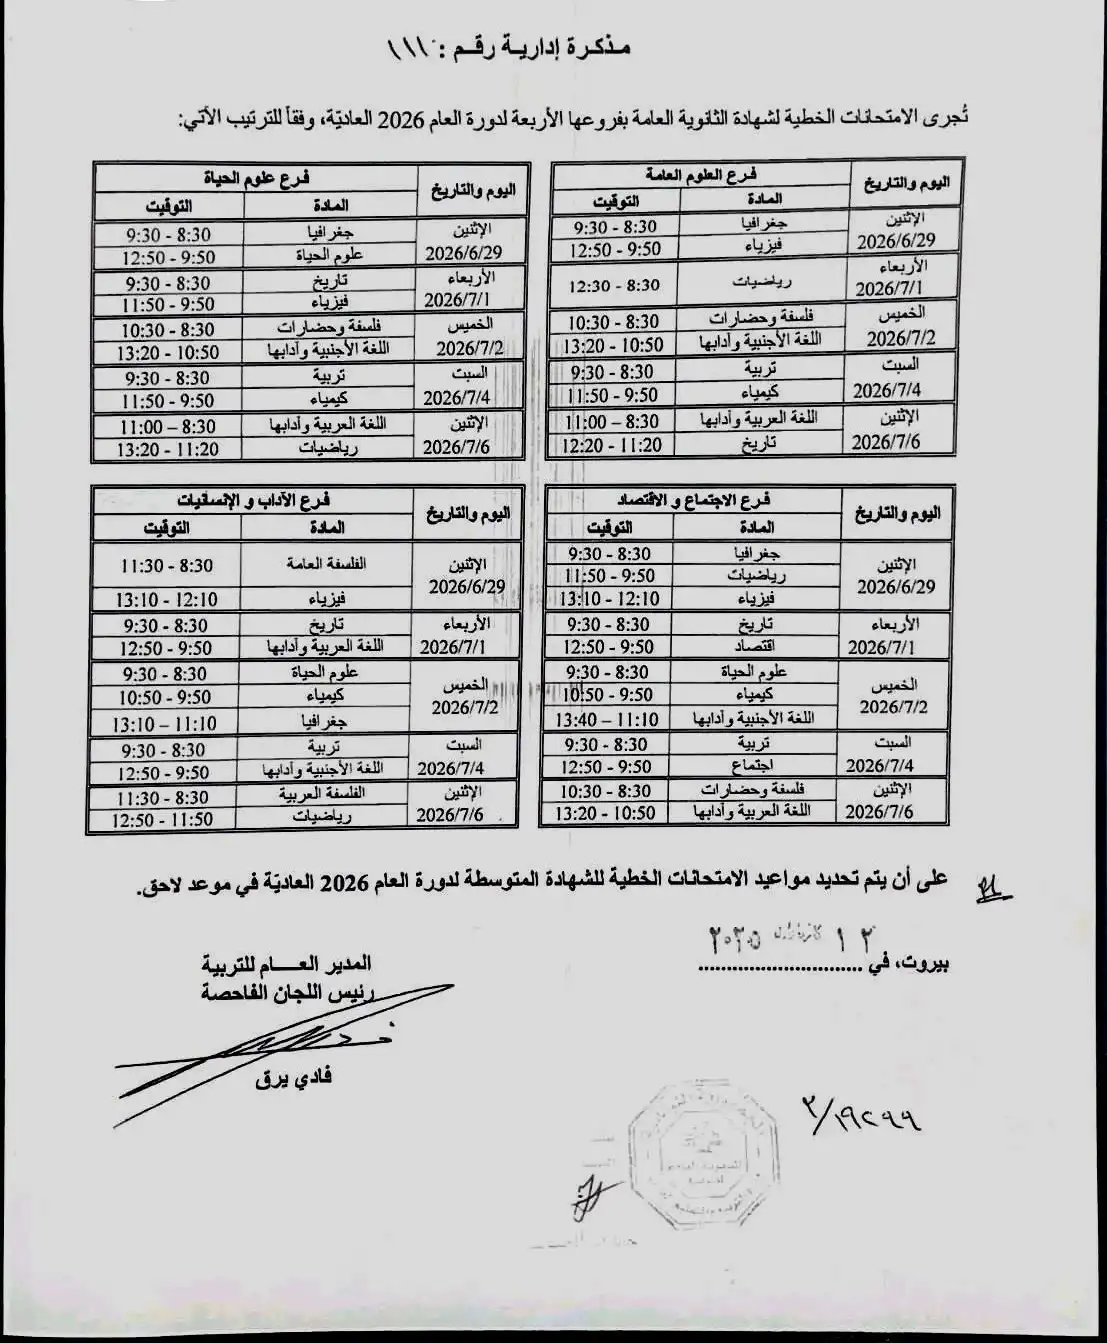 مذكرة إدارية رقم : ١١١
تُجرى الامتحانات الخطية لشهادة الثانوية العامة بفروعها الأربعة لدورة العام 2026 العاديّة، وفقاً للترتيب الآتي:
اليوم والتاريخ فرع العلوم العامة
المادة التوقيت
الإثنين 2026/6/29 جغرافيا 8:30 - 9:30
فيزياء 9:50 - 12:50
الأربعاء 2026/7/1 رياضيات 8:30 - 12:30
الخميس 2026/7/2 فلسفة وحضارات 8:30 - 10:30
اللغة الأجنبية وآدابها 10:50 - 13:20
السبت 2026/7/4 تربية 8:30 - 9:30
كيمياء 9:50 - 11:50
الإثنين 2026/7/6 اللغة العربية وآدابها 8:30 – 11:00
تاريخ 11:20 - 12:20
اليوم والتاريخ فرع علوم الحياة
المادة التوقيت
الإثنين 2026/6/29 جغرافيا 8:30 - 9:30
علوم الحياة 9:50 - 12:50
الأربعاء 2026/7/1 تاريخ 8:30 - 9:30
فيزياء 9:50 - 11:50
الخميس 2026/7/2 فلسفة وحضارات 8:30 - 10:30
اللغة الأجنبية وآدابها 10:50 - 13:20
السبت 2026/7/4 تربية 8:30 - 9:30
كيمياء 9:50 - 11:50
الإثنين 2026/7/6 اللغة العربية وآدابها 8:30 – 11:00
رياضيات 11:20 - 13:20
اليوم والتاريخ فرع الاجتماع و الاقتصاد
المادة التوقيت
الإثنين 2026/6/29 جغرافيا 8:30 - 9:30
رياضيات 9:50 - 11:50
فيزياء 12:10 - 13:10
الأربعاء 2026/7/1 تاريخ 8:30 - 9:30
اقتصاد 9:50 - 12:50
الخميس 2026/7/2 علوم الحياة 8:30 - 9:30
كيمياء 9:50 - 10:50
اللغة الأجنبية وآدابها 11:10 – 13:40
السبت 2026/7/4 تربية 8:30 - 9:30
اجتماع 9:50 - 12:50
الإثنين 2026/7/6 فلسفة وحضارات 8:30 - 10:30
اللغة العربية وآدابها 10:50 - 13:20
اليوم والتاريخ فرع الآداب و الإنسانيات
المادة التوقيت
الإثنين 2026/6/29 الفلسفة العامة 8:30 - 11:30
فيزياء 12:10 - 13:10
الأربعاء 2026/7/1 تاريخ 8:30 - 9:30
اللغة العربية وآدابها 9:50 - 12:50
الخميس 2026/7/2 علوم الحياة 8:30 - 9:30
كيمياء 9:50 - 10:50
جغرافيا 11:10 – 13:10
السبت 2026/7/4 تربية 8:30 - 9:30
اللغة الأجنبية وآدابها 9:50 - 12:50
الإثنين 2026/7/6 الفلسفة العربية 8:30 - 11:30
رياضيات 11:50 - 12:50
على أن يتم تحديد مواعيد الامتحانات الخطية للشهادة المتوسطة لدورة العام 2026 العاديّة في موعد لاحق.
بيروت، في ١٢ كانون الأول ٢٠٢٥
المدير العـــــام للتربية
رئيس اللجان الفاحصة
فادي يرق